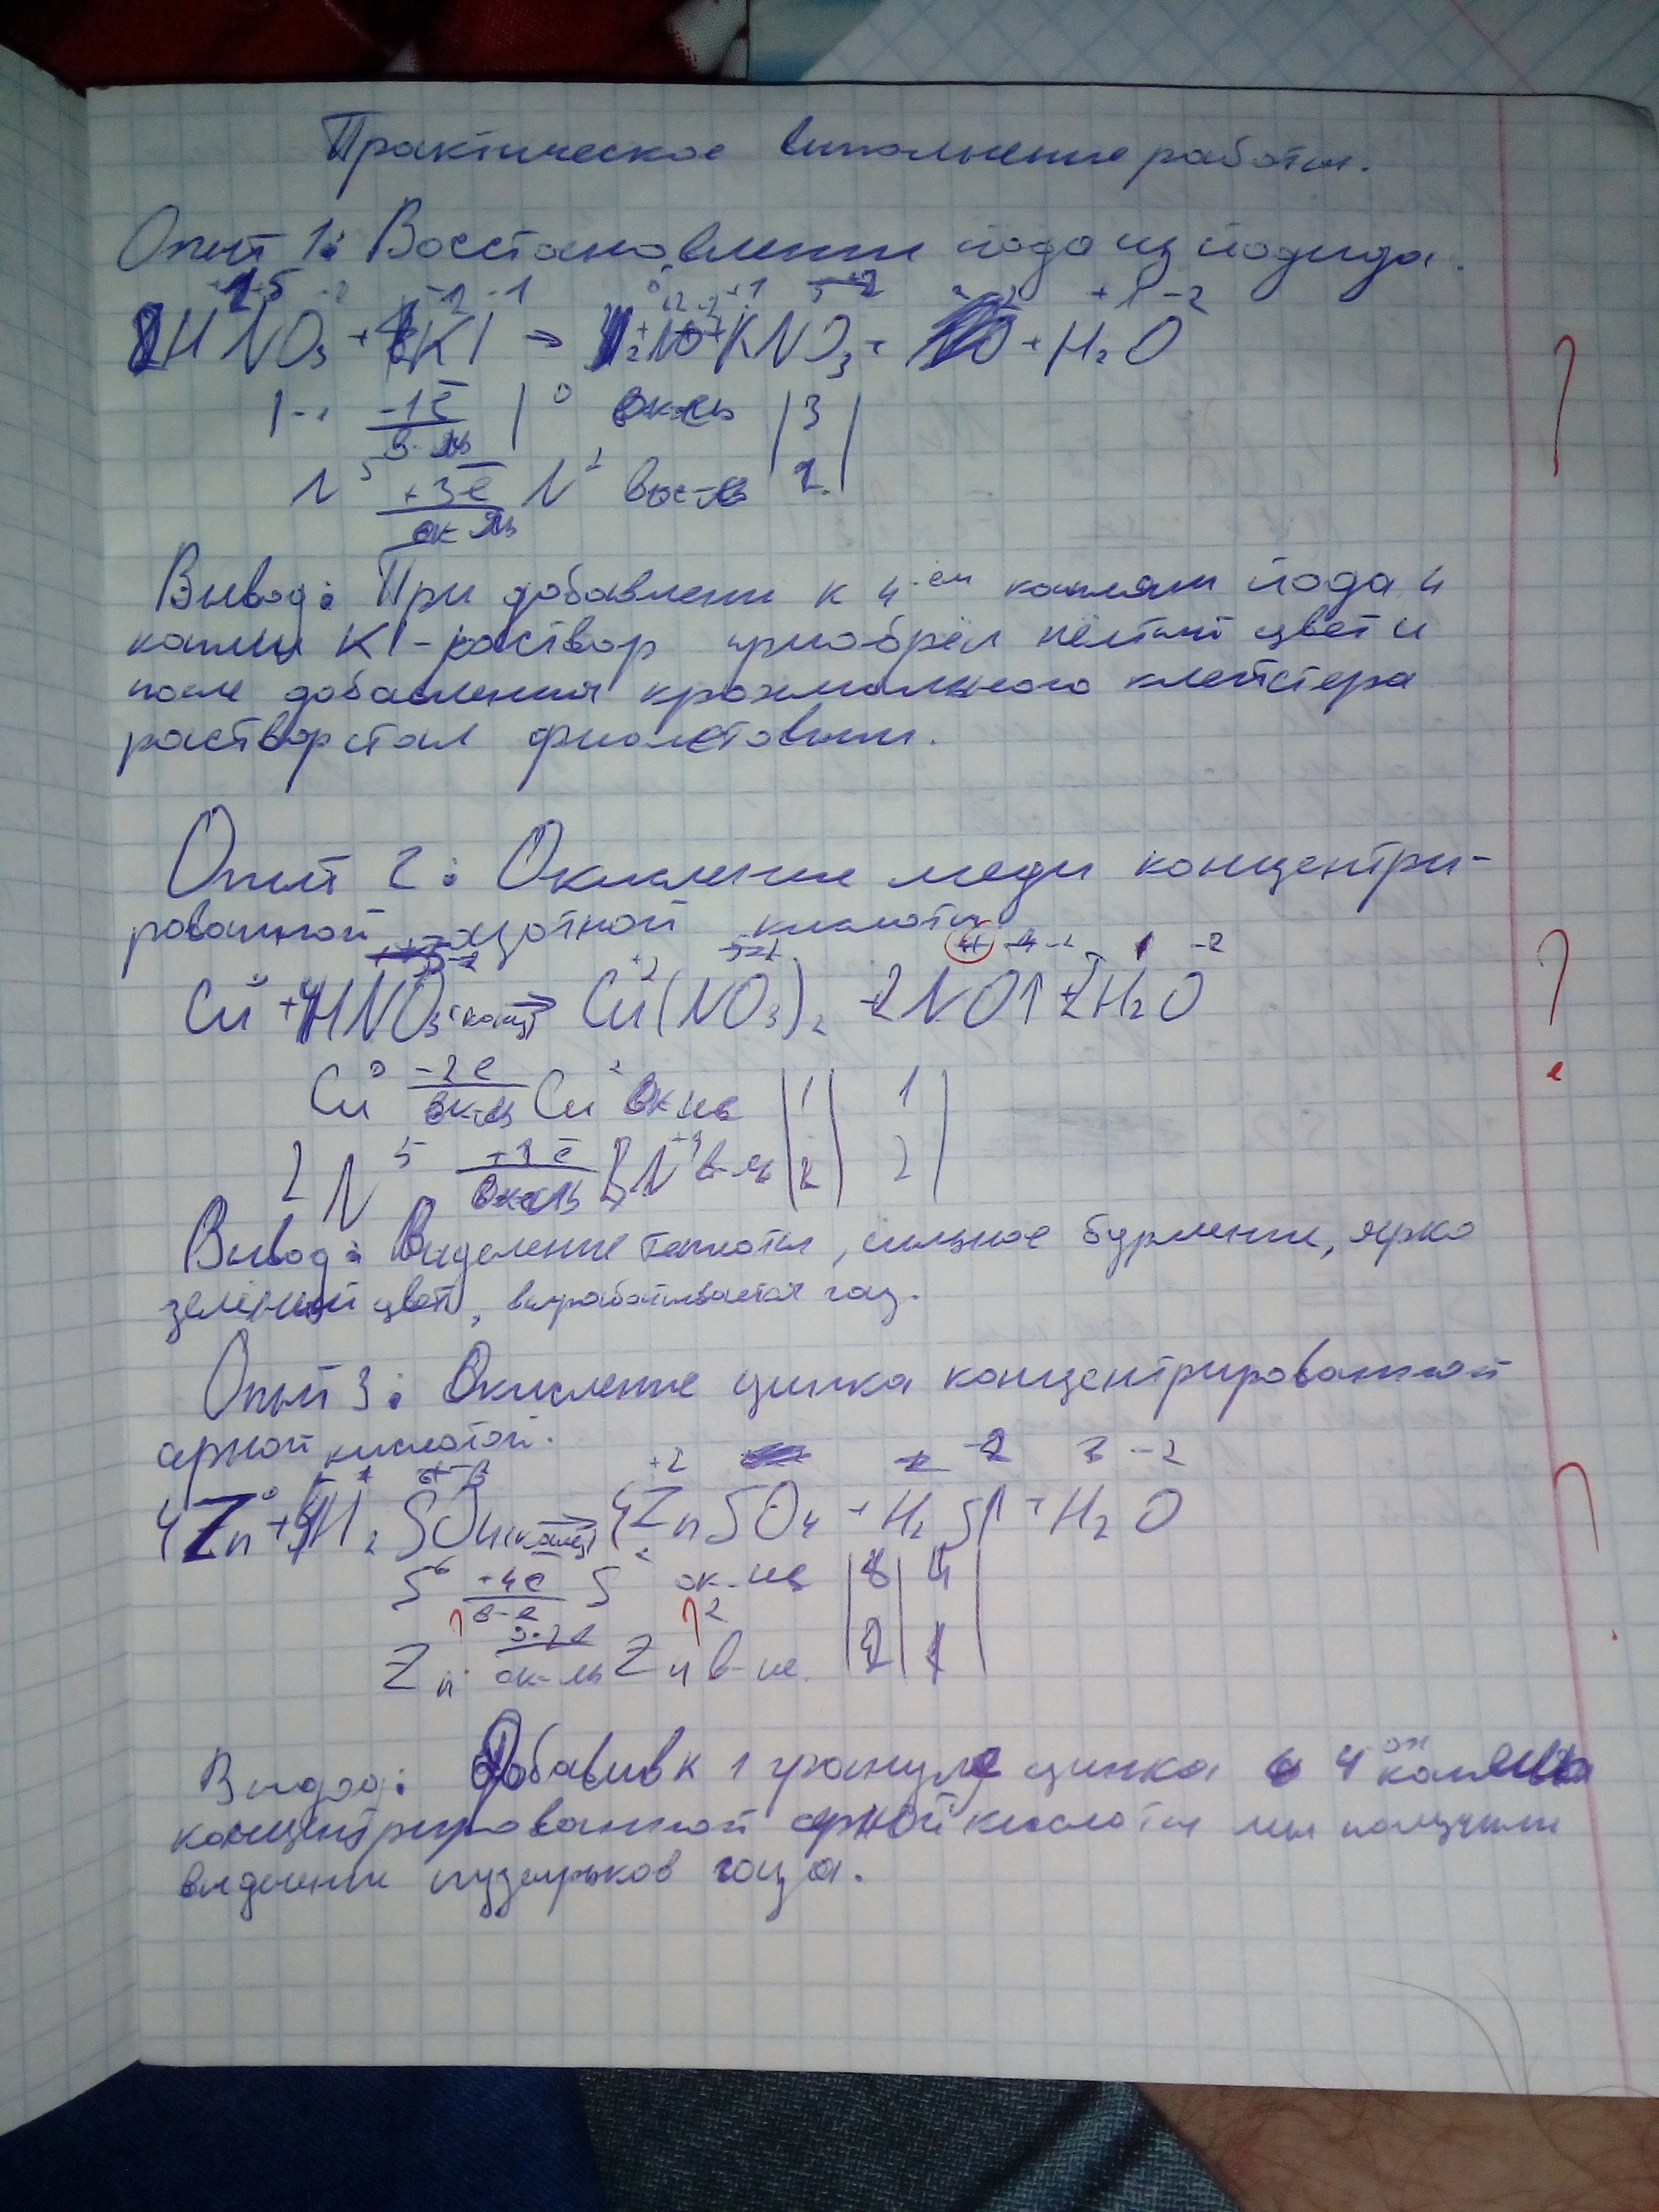 Практическое выполнение работы.
Опыт 1: Восстановление йода из йодида.
HNO₃ + KI → I₂ + NO + KNO₃ + H₂O
I -1e 0 ок-ль 3
N 5 +3e N 2 вос-ль 2
ок-ль
Вывод: При добавлении к 4-ём каплям йода 4
капли KI - раствор приобрёл жёлтый цвет и
после добавления крахмального клейстера
раствор стал фиолетовым.
Опыт 2: Окисление меди концентри-
рованной азотной кислоты
Cu + 4HNO₃(конц) → Cu(NO₃)₂ + 2NO↑ + 2H₂O
Cu 0 -2e Cu 2 1 1
2N 5 +1e N 2 2
Вывод: Выделение теплоты, сильное бурление, ярко
зелёный цвет, вырабатывается газ.
Опыт 3: Окисление цинка концентрированной
серной кислотой.
4Zn + 5H₂SO₄(конц) → 4ZnSO₄ + H₂S↑ + H₂O
S 6 S 2 8 4
в-е
Zn Zn 2 1
ок-ль
Вывод: Добавив к 1 грануле цинка 4
концентрированной серной кислоты мы получили
выделение пузырьков газа.